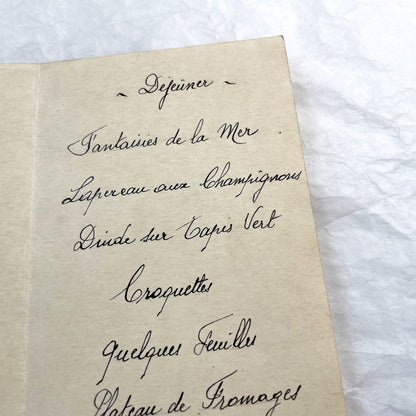 ~ Déjeûner ~
Fantaisies de la Mer
Lapereau aux Champignons
Dinde sur Tapis Vert
Croquettes
Quelques Feuilles
Plateau de Fromages